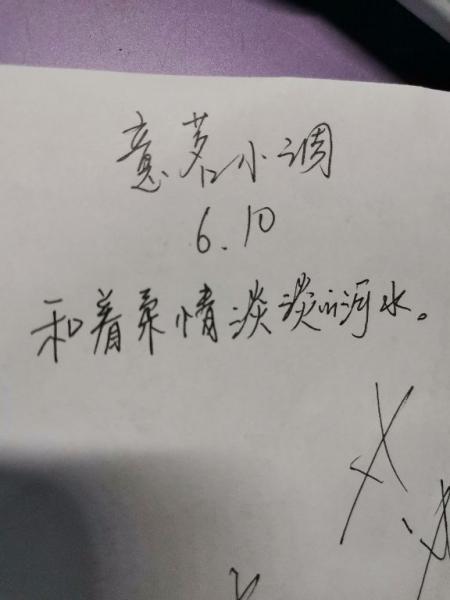 意茗小调
6.10
和着柔情淡淡听河水。